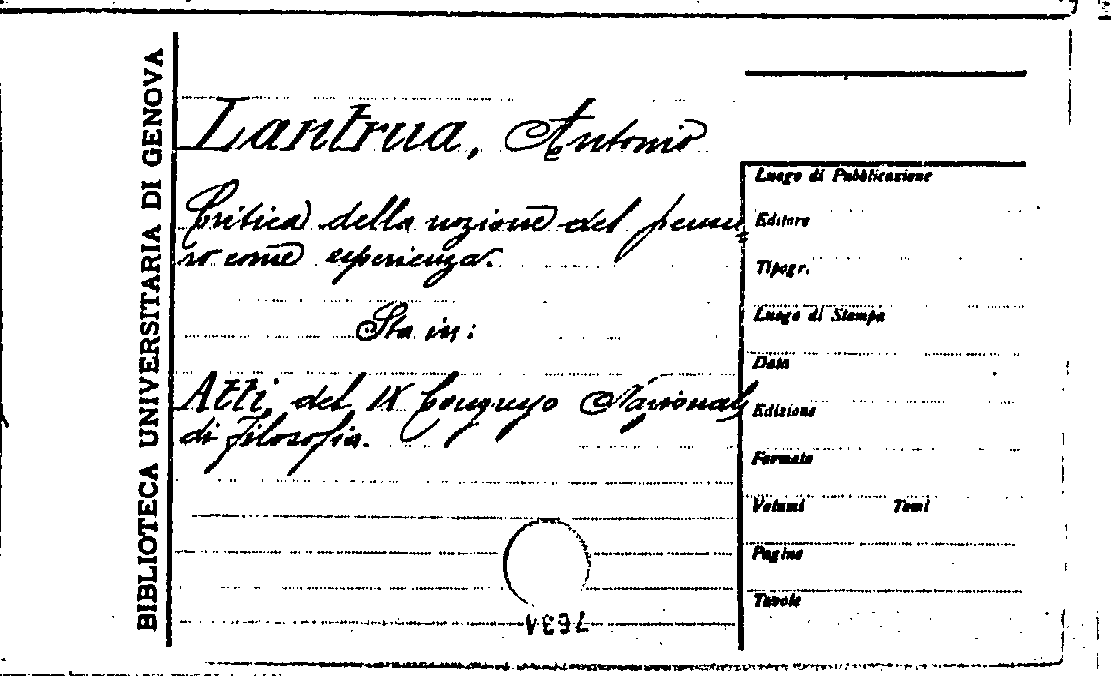 BIBLIOTECA UNIVERSITARIA DI GENOVA
Lantrua, Antonio
Critica della nozione del pensie=
ro come esperienza.
Sta in:
Atti del IX Congresso Nazionale
di filosofia.
Luogo di Pubblicazione
Editore
Tipogr.
Luogo di Stampa
Data
Edizione
Formato
Volumi Tomi
Pagine
Tavole